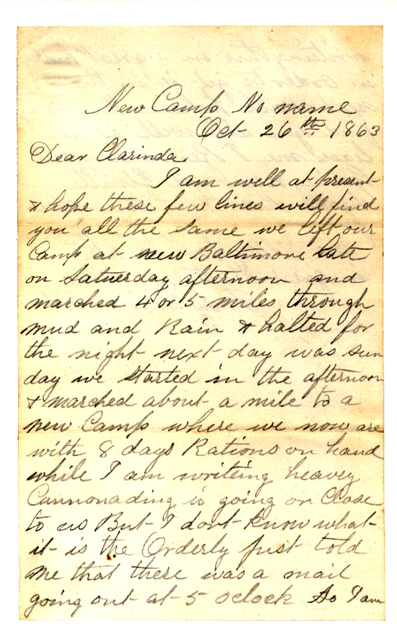 New Camp No name
Oct 26th 1863
Dear Clarinda
I am well at present
& hope these few lines will find
you all the same we left our
Camp at new Baltimore late
on Satuerday afternoon and
marched 4 or 5 miles through
mud and Rain & halted for
the night next day was sun
day we started in the afternoon
& marched about a mile to a
new Camp where we now are
with 8 days Rations on hand
while I am writing heavey
Cannonading is going on Close
to us But I dont know what
it is the Orderly just told
me that there was a mail
going out at 5 oclock So I am